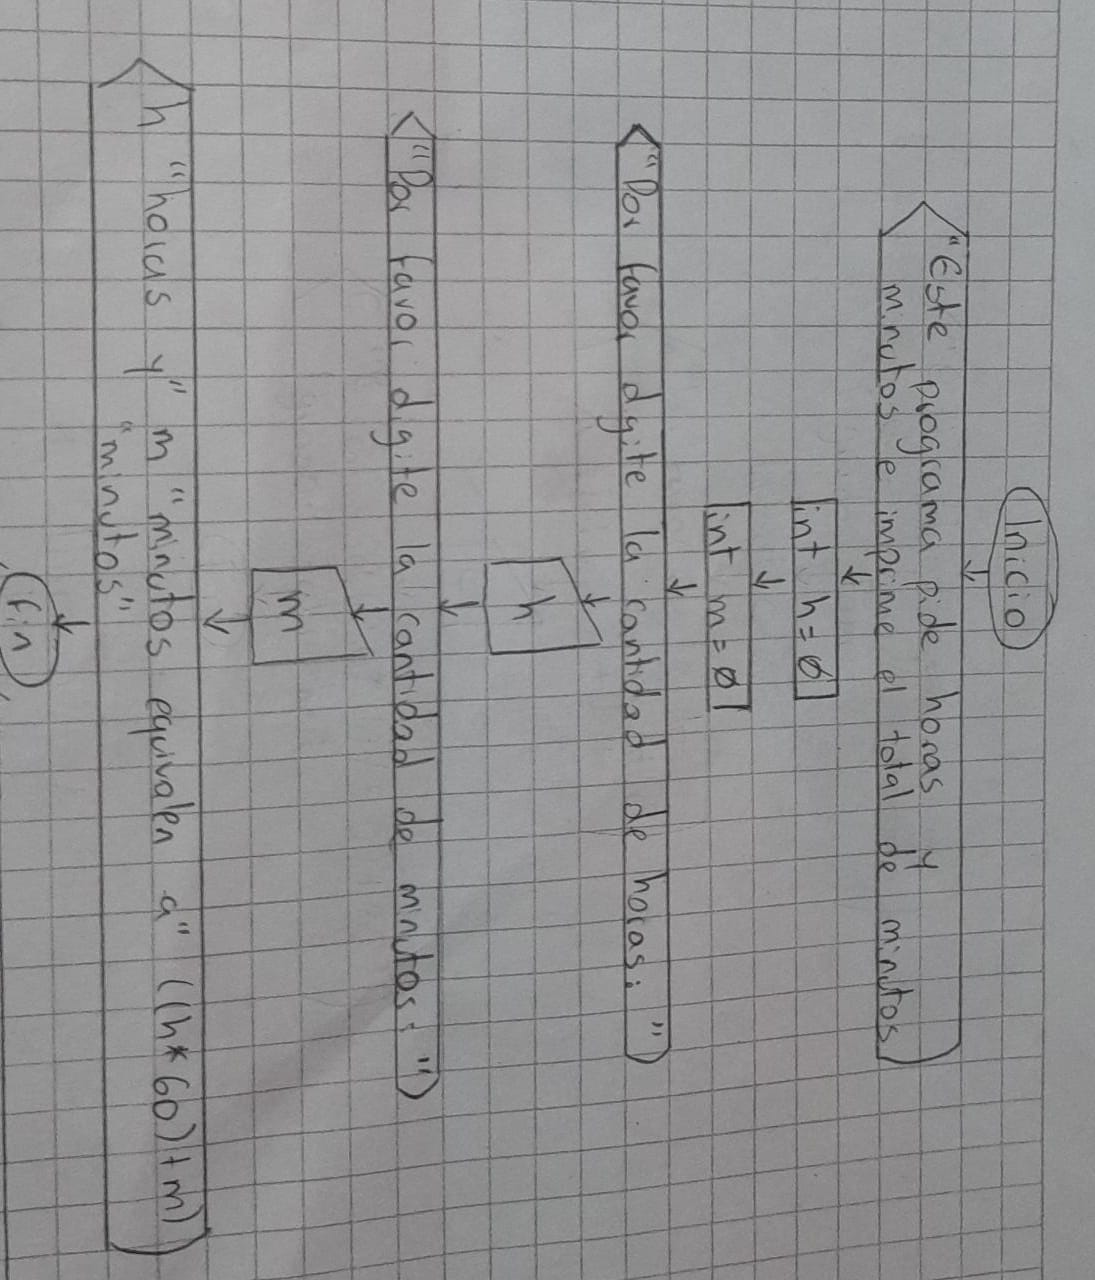 Inicio
"Este programa pide horas y
minutos e imprime el total de minutos
int h = 0
int m = 0
"Por favor digite la cantidad de horas: "
h
"Por favor digite la cantidad de minutos: "
m
h "horas y" m "minutos equivalen a" ((h*60)+m)
"minutos"
fin